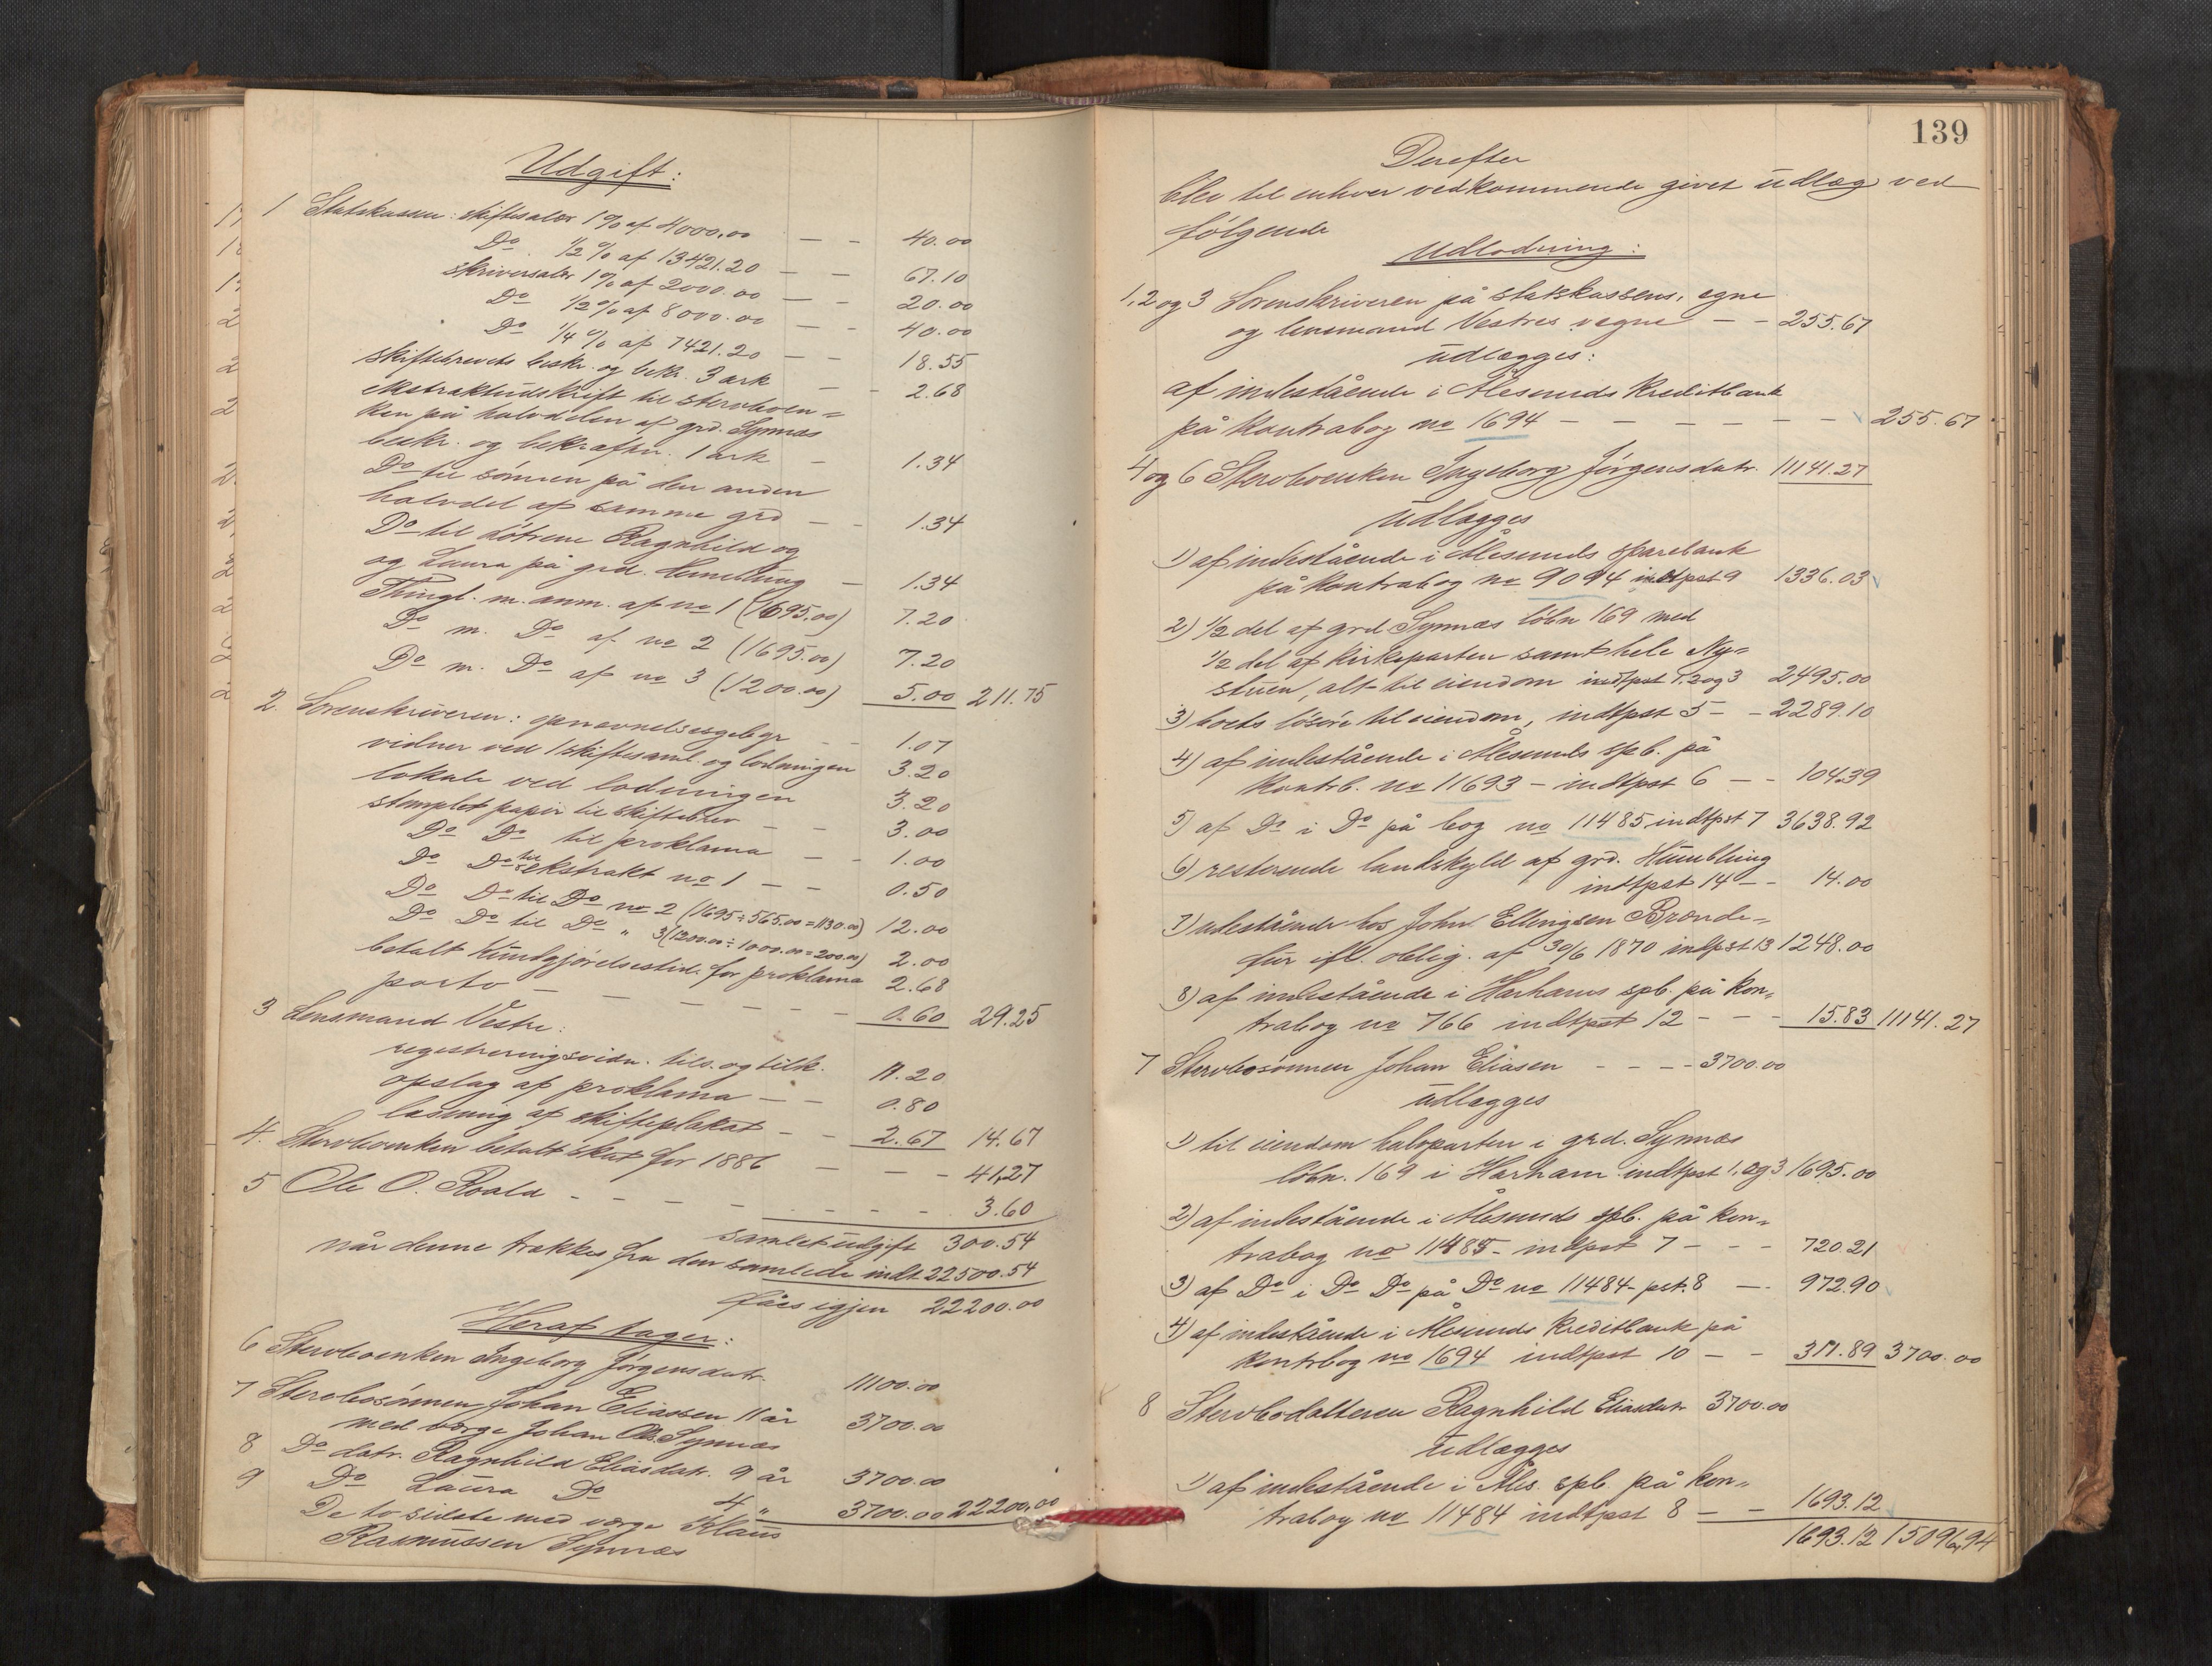 Udgift:
1 Statskassen: skiftesalær 1% af 4000.00 — — 40.00
Do 1/2 % af 13421.20 — — 67.10
skriversalær 1% af 2000.00 — — 20.00
Do 1/2 % af 8000.00 — — 40.00
Do 1/4 % af 7421.20 — — 18.55
skiftebrevets beskr. og bekr. 3 ark — — 2.68
ekstraktudskrift til stervboen=
ken på halvdelen af grd. Synnæs
beskr. og bekræftn. 1 ark — 1.34
Do til sønnen på den anden
halvdel af samme grd — — 1.34
Do til døtrene Ragnhild og
og Laura på grd. Humblung — 1.34
Thingl. m. anm. af no 1 (1695.00) 7.20
Do m. Do af no 2 (1695.00) 7.20
Do m. Do af no 3 (1200.00) 5.00 211.75
2. Sorenskriveren: opnævnelsesgebyr — — 1.07
vidner ved 1 skiftesaml. og lodningen 3.20
lokale ved lodningen 3.20
stemplet papir til skiftebrev — — 3.00
Do Do til proklama — — 1.00
Do Do til ekstrakt no 1 — — 0.50
Do Do til Do no 2 (1695 ÷ 565.00 = 1130.00) 12.00
Do Do til Do " 3 (1200.00 ÷ 1000.00 = 200.00) 2.00
betalt Kundgjørelsestid. for proklama 2.68
porto — — — — — 0.60 29.25
3 Lensmand Vestre:
registreringsvidn. tils. og tilk. 11.20
opslag af proklama — — 0.80
læsning af skifteplakat — — 2.67 14.67
4. Stervboenken betalt skat for 1886 — — — 41,27
5 Ole O. Roald — — — — — — 3.60
samlet udgift 300.54
når denne trækkes fra den samlede indt. 22500.54
fåes igjen 22200.00
Heraf tager:
6 Stervboenken Ingeborg Jørgensdatr. 11100.00
7 Stervbosønnen Johan Eliassen 11 år 3700.00
med værge Johan Synnæs
8 Do datr. Ragnhild Eliasdatr. 9 år 3700.00
9 Do Laura Do 4 " 3700.00 22200,00
De to sidste med værge Klaus
Rasmussen Synnæs
139
Derefter
blev til enhver vedkommende givet udlæg ved
følgende
Udlodning:
1, 2 og 3 Sorenskriveren på statskassens, egne
og lensmand Vestres vegne — — 255.67
udlægges:
af indestående i Ålesunds Kreditbank
på Kontrabog no 1694 — — — — — — 255.67
4 og 6 Stervboenken Ingeborg Jørgensdatr. 11141.27
udlægges
1) af indestående i Ålesunds sparebank
på kontrabog no 9094 indtpst 9 1336.03
2) 1/2 del af grd. Synnæs løbn 169 med
1/2 del af kirkeparten samt hele Ny=
stuen, alt til eiendom indtpst 1, 2 og 3 2495.00
3) boets løsøre til eiendom, indtpst 5 — — 2289.10
4) af indestående i Ålesunds spb. på
Kontrb. no 11693 — indtpst 6 — — 104.39
5) af Do i Do på bog no 11485 indtpst 7 3638.92
6) resterende landskyld af grd. Humblung
indtpst 14 — — 14.00
7) udestående hos John Ellingsen Brande=
fur ifl. oblig. af 30/6 1870 indtpst 13 1248.00
8) af indestående i Harhams spb. på kon=
trabog no 766 indtpst 12 — — — 15.83 11141.27
7 Stervbosønnen Johan Eliasen — — — — 3700.00
udlægges
1) til eiendom halvparten i grd. Synnæs
løbn. 169 i Harham indtpst 1. og 3 1695.00
2) af indestående i Ålesunds spb. på kon=
trabog no 11485 — indtpst 7 — — — 720.21
3) af Do i Do Do på Do no 11484 — pst. 8 — — 972.90
4) af indestående i Ålesunds Kreditbank på
Kontrbog no 1694 indtpst 10 — — 311.89 3700.00
8 Stervbodatteren Ragnhild Eliasdatr 3700.00
udlægges
1) af indestående i Åles. spb. på kon=
trabog no 11484 indtpst 8 — — 1693.12
1693.12 15096,94